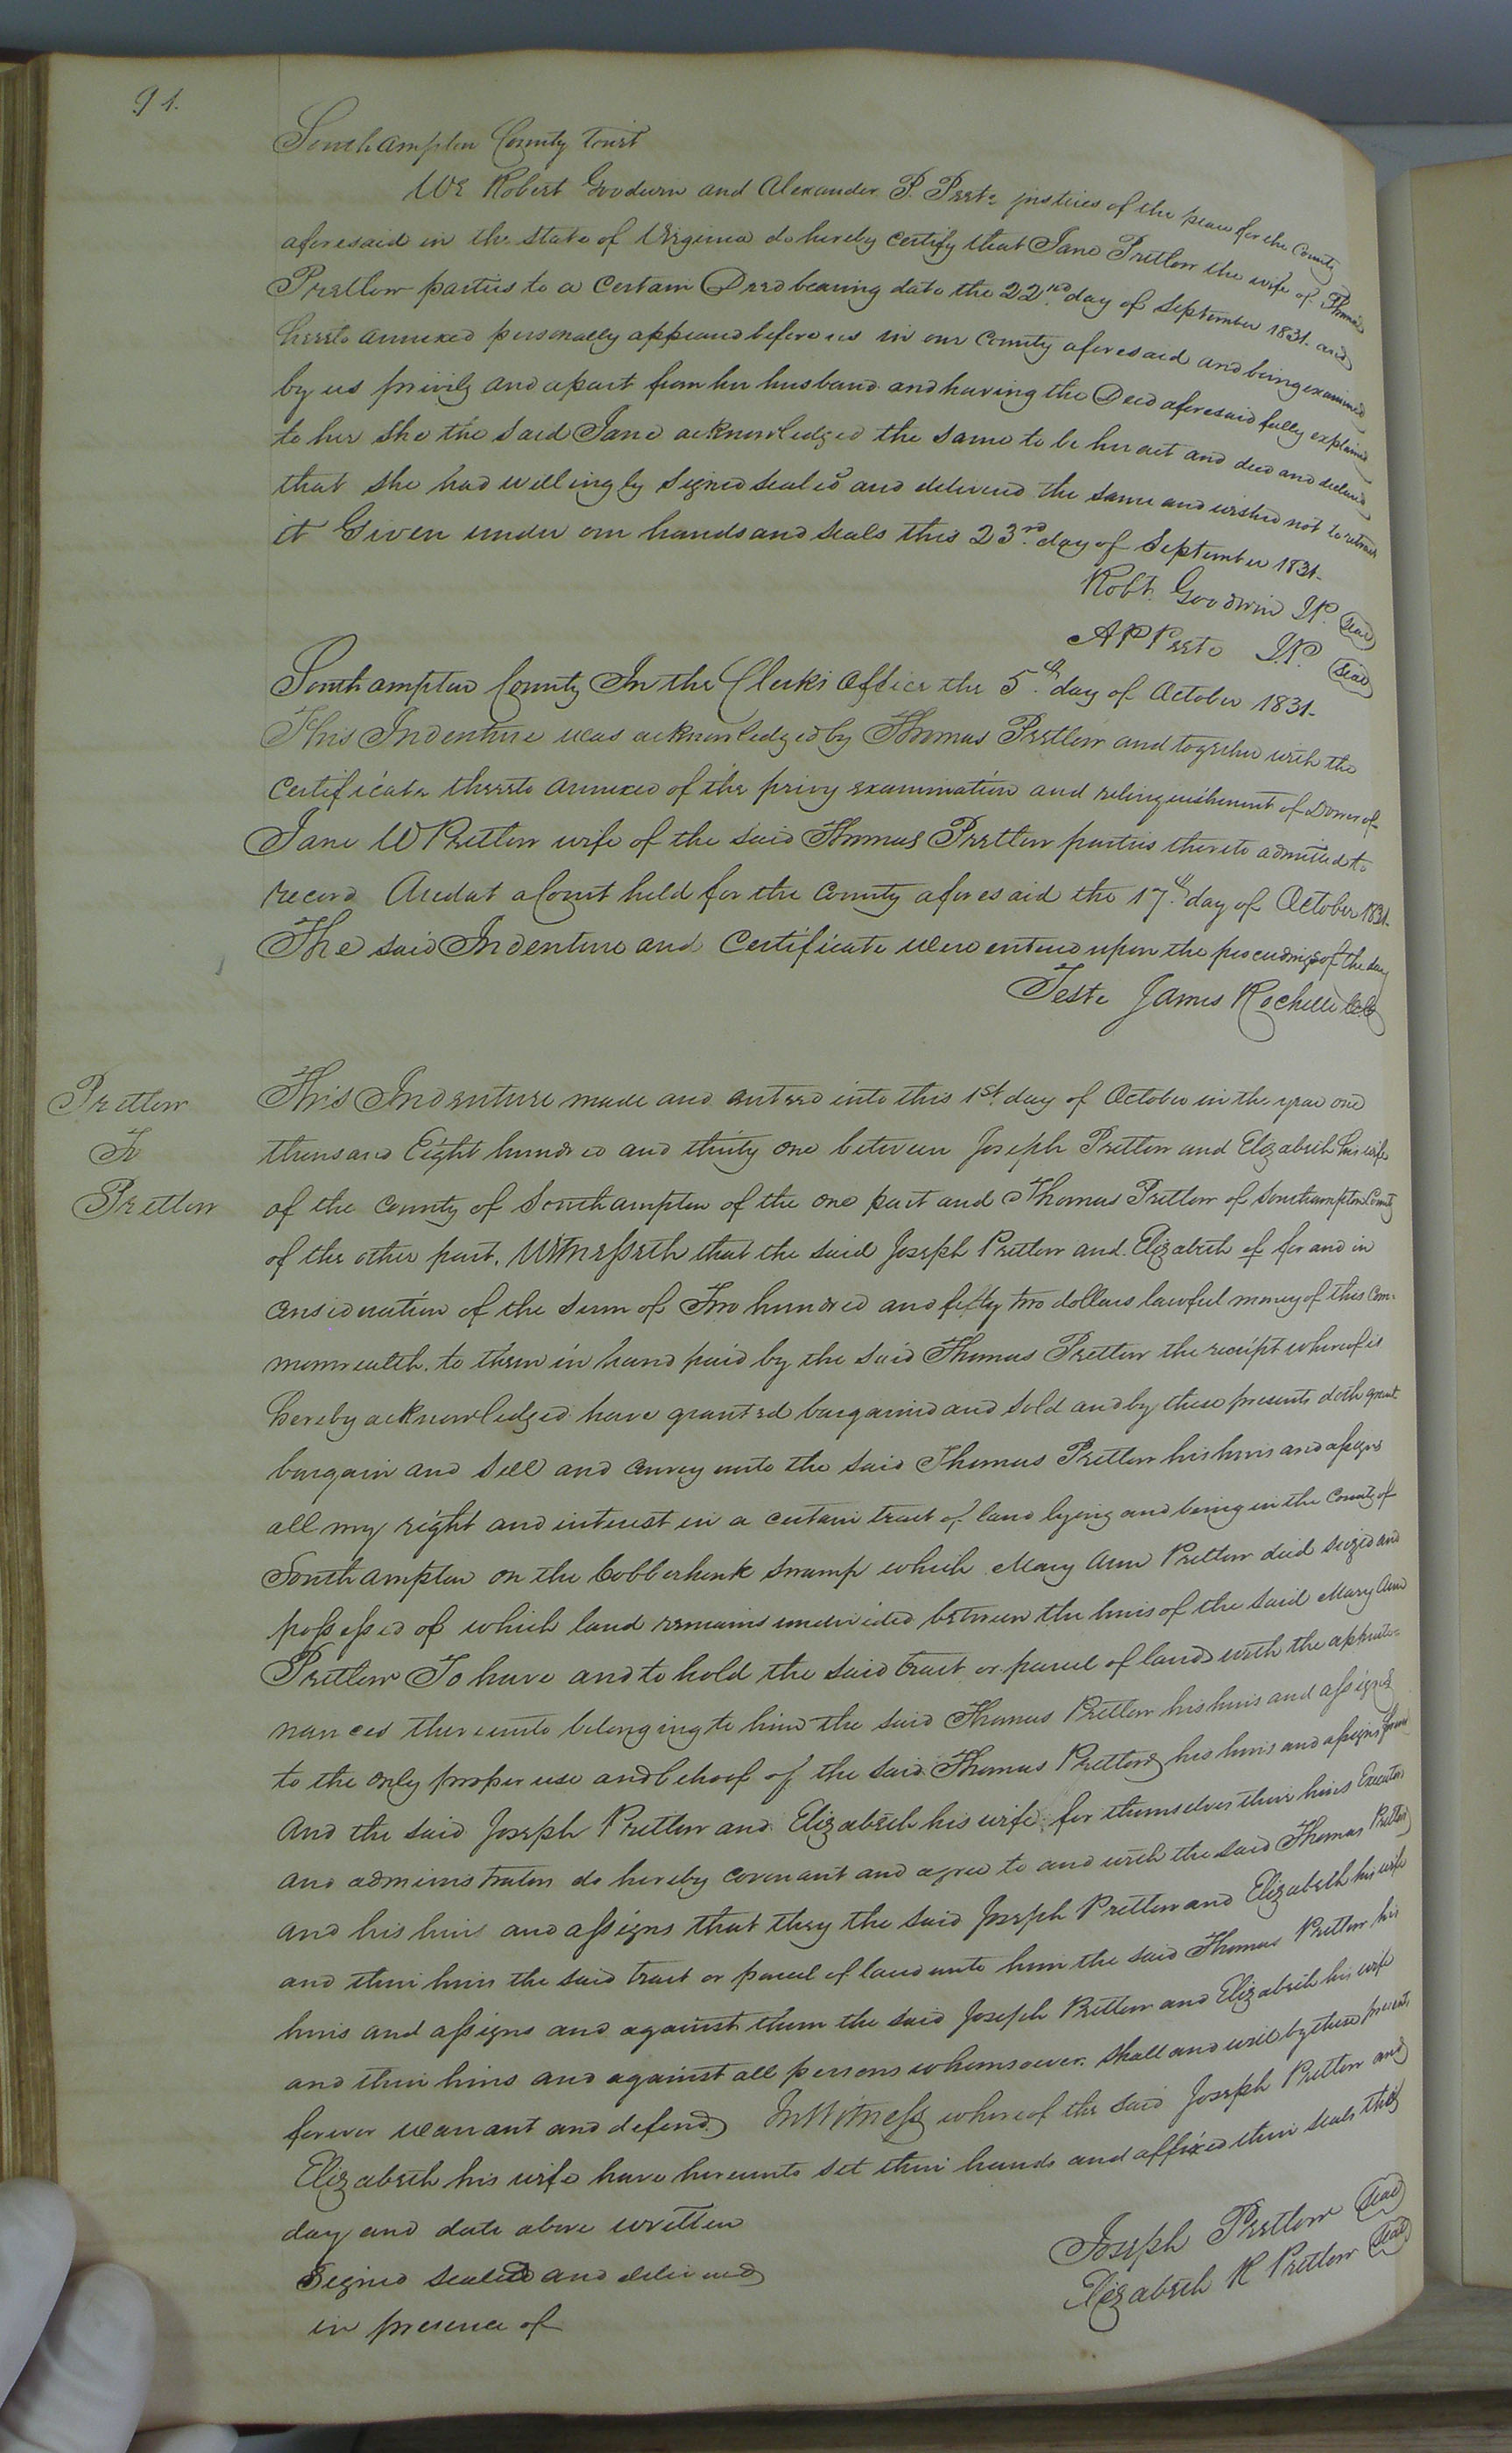 91.
Southampton County Court
We Robert Goodwin and Alexander P. Peete justices of the peace for the County
aforesaid in the State of Virginia do hereby certify that Jane Pretlow the wife of Thomas
Pretlow parties to a certain Deed bearing date the 22nd. day of September 1831. and
hereto annexed personally appeared before us in our County aforesaid and being examined
by us privily and apart from her husband and having the Deed aforesaid fully explained
to her she the said Jane acknowledged the same to be her act and deed and declared
that she had willingly signed sealed and delivered the same and wished not to retract
it Given under our hands and seals this 23rd. day of September 1831-
Robt. Goodwin J.P. Seal
A P Peete J.P. Seal
Southampton County In the Clerks Office the 5th. day of October 1831-
This Indenture was acknowledged by Thomas Pretlow and together with the
Certificate thereto annexed of the privy examination and relinquishment of Dower of
Jane W Pretlow wife of the said Thomas Pretlow parties thereto admitted to
record And at a Court held for the County aforesaid the 17th. day of October 1831-
The said Indenture and Certificate were entered upon the proceedings of the day
Teste James Rochelle
Pretlow
To
Pretlow
This Indenture made and entered into this 1st. day of October in the year one
thousand Eight hundred and thirty one between Joseph Pretlow and Elizabeth his wife
of the County of Southampton of the one part and Thomas Pretlow of Southampton County
of the other part. Witnesseth that the said Joseph Pretlow and Elizabeth of for and in
consideration of the sum of Two hundred and fifty two dollars lawful money of this Com-
monwealth. to them in hand paid by the said Thomas Pretlow the receipt whereof is
hereby acknowledged have granted bargained and sold and by these presents doth grant
bargain and sell and convey unto the said Thomas Pretlow his heirs and assigns
all my right and interest in a certain tract of land lying and being in the County of
Southampton on the swamp which Mary Ann Pretlow died seized and
possessed of which land remains undivided between the heirs of the said Mary Ann
Pretlow To have and to hold the said tract or parcel of land with the appurte-
nances thereunto belonging to him the said Thomas Pretlow his heirs and assigns
to the only proper use and behoof of the said Thomas Pretlow his heirs and assigns forever
And the said Joseph Pretlow and Elizabeth his wife for themselves their heirs Executors
and administrators do hereby covenant and agree to and with the said Thomas Pretlow
and his heirs and assigns that they the said Joseph Pretlow and Elizabeth his wife
and their heirs the said tract or parcel of land unto him the said Thomas Pretlow his
heirs and assigns and against them the said Joseph Pretlow and Elizabeth his wife
and their heirs and against all persons whomsoever shall and will by these presents
forever warrant and defend In Witness whereof the said Joseph Pretlow and
Elizabeth his wife have hereunto set their hands and affixed their seals the
day and date above written
Signed sealed and delivered
in presence of
Joseph Pretlow Seal
Elizabeth R Pretlow Seal